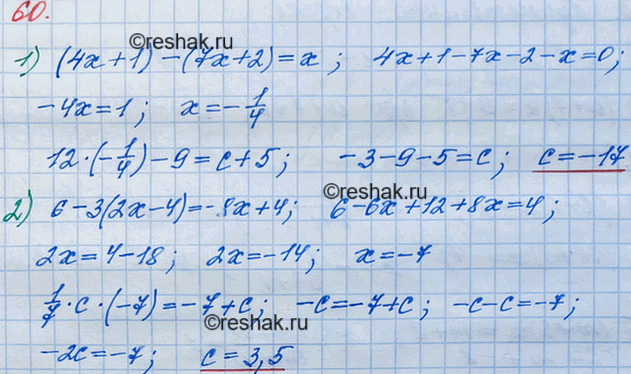 60.
©reshak.ru
1) (4x+1)-(7x+2)=x; 4x+1-7x-2-x=0;
-4x=1; x=-1/4
12·(-1/4)-9=c+5; -3-9-5=c; c=-17
©reshak.ru
2) 6-3(2x-4)=-8x+4; 6-6x+12+8x=4;
2x=4-18; 2x=-14; x=-7
1/7·c·(-7)=-7+c; -c=-7+c; -c-c=-7;
©reshak.ru
-2c=-7; c=3,5